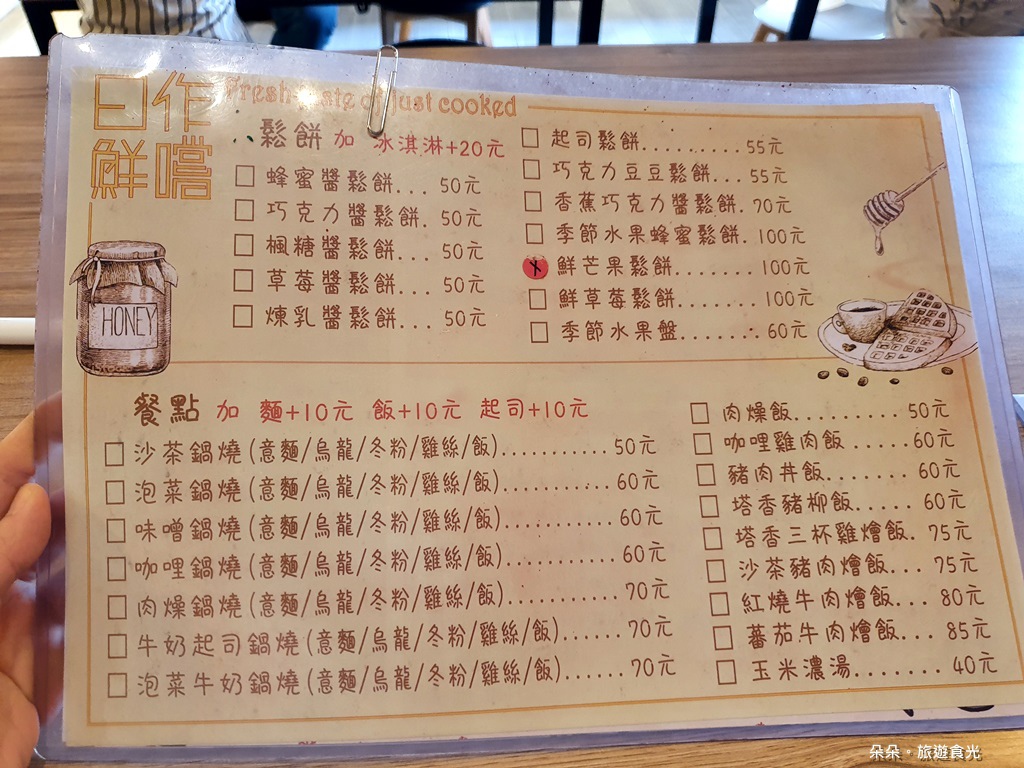 日作
鮮嚐
Fresh taste of just cooked
鬆餅 加 冰淇淋+20元
蜂蜜醬鬆餅... 50元
巧克力醬鬆餅. 50元
楓糖醬鬆餅... 50元
草莓醬鬆餅... 50元
煉乳醬鬆餅... 50元
起司鬆餅..........55元
巧克力豆豆鬆餅... 55元
香蕉巧克力醬鬆餅. 70元
季節水果蜂蜜鬆餅. 100元
鮮芒果鬆餅....... 100元
鮮草莓鬆餅....... 100元
季節水果盤....... 60元
HONEY
餐點 加 麵+10元 飯+10元 起司+10元
沙茶鍋燒(意麵/烏龍/冬粉/雞絲/飯)........... 50元
泡菜鍋燒(意麵/烏龍/冬粉/雞絲/飯)........... 60元
味噌鍋燒(意麵/烏龍/冬粉/雞絲/飯)........... 60元
咖哩鍋燒(意麵/烏龍/冬粉/雞絲/飯)........... 60元
肉燥鍋燒(意麵/烏龍/冬粉/雞絲/飯)........... 70元
牛奶起司鍋燒(意麵/烏龍/冬粉/雞絲/飯)...... 70元
泡菜牛奶鍋燒(意麵/烏龍/冬粉/雞絲/飯)...... 70元
肉燥飯.......... 50元
咖哩雞肉飯...... 60元
豬肉丼飯........ 60元
塔香豬柳飯...... 60元
塔香三杯雞燴飯. 75元
沙茶豬肉燴飯... 75元
紅燒牛肉燴飯... 80元
蕃茄牛肉燴飯... 85元
玉米濃湯....... 40元
朵朵。旅遊食光